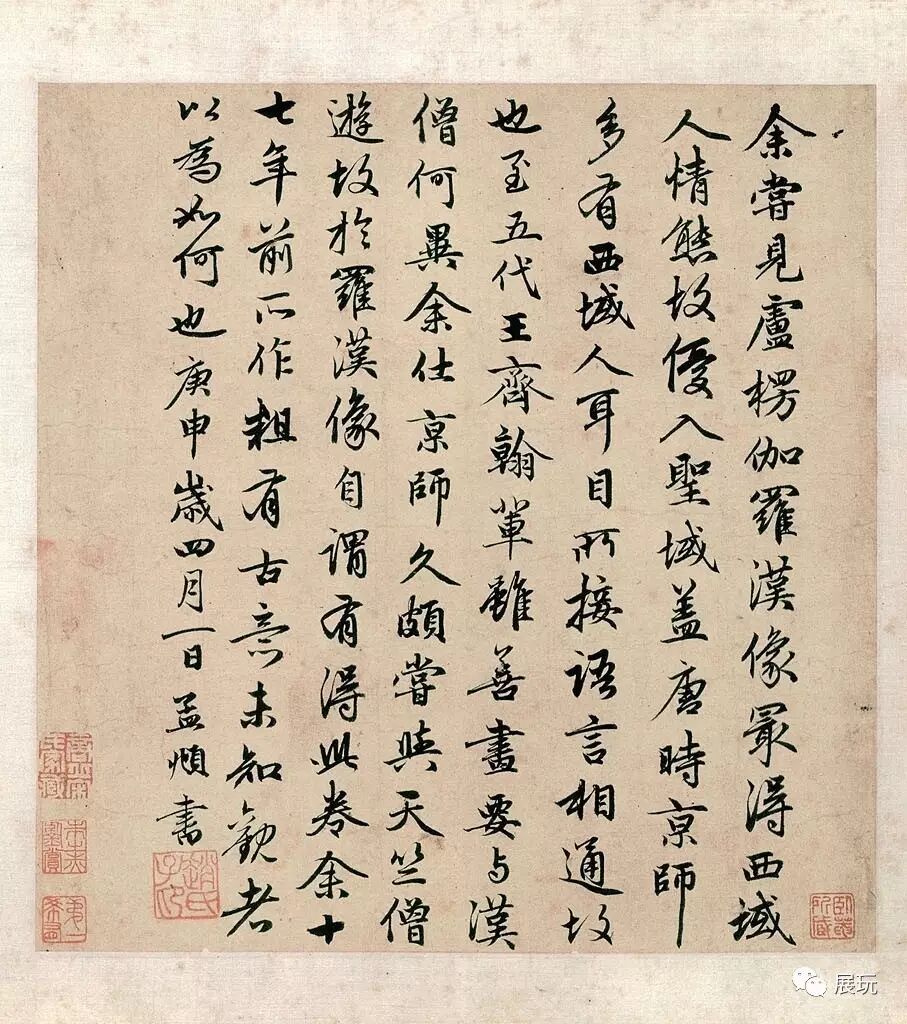 余嘗見盧楞伽羅漢像㝡得西域
人情態故優入聖域蓋唐時京師
多有西域人耳目所接語言相通故
也至五代王齊翰輩雖善畫要与漢
僧何異余仕京師久頗嘗與天竺僧
遊故於羅漢像自謂有得此卷余十
七年前所作粗有古意未知觀者
以為如何也庚申歲四月一日孟頫書
趙氏子昂
展玩